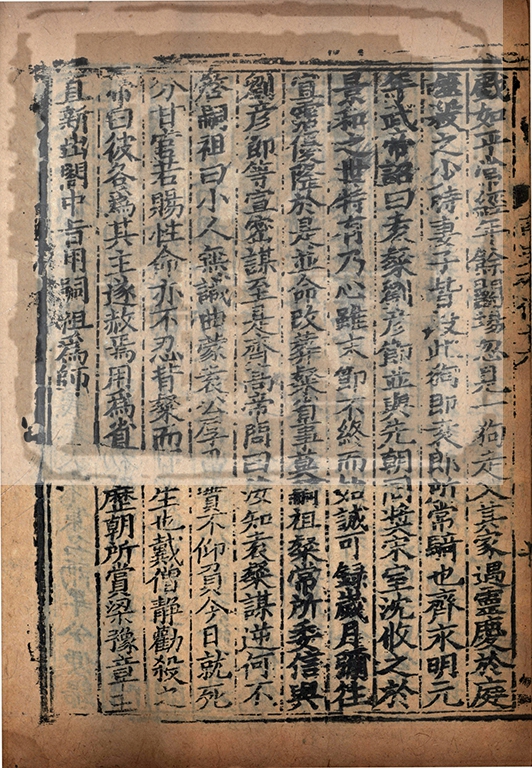 戲如平常經年餘鬭場忽見一狗走入其家遇靈慶於庭
噬殺之少時妻子皆沒此狗即袁郎所常騎也齊永明元
年武帝詔曰袁粲劉彥節並與先朝同獎宋室沈攸之於
景和之世特有乃心雖末節不終而始誠可錄歲月彌往
宜霑優隆於是並命改葬粲省事莫嗣祖粲常所委信與
劉彥節等宣密謀至是齊高帝問曰汝知袁粲謀逆何不
啓嗣祖曰小人無識曲蒙袁公厚恩實不仰負今日就死
分甘官若賜性命亦不忍背粲而生也戴僧靜勸殺之
帝曰彼各爲其主遂赦焉用爲省歷朝所賞梁豫章王
直新出閤中旨用嗣祖爲師